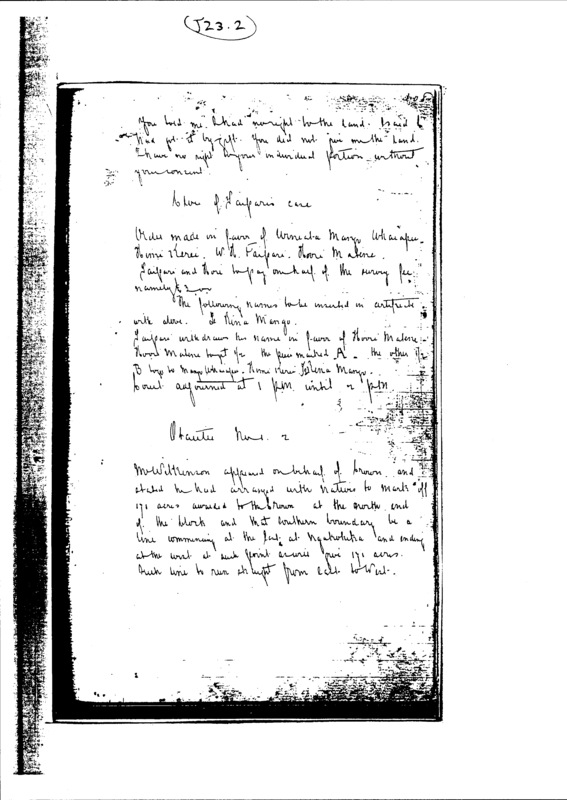 (J23.2)
108
You told me I had no right to the land. I said I
had got it by gift. You did not give me the land.
I have no right to your individual portion without
your consent.
Close of Taipari's case
Order made in favor of Mango Whaiapu.
W. H. Taipari. Hoori Matene.
Taipari and Hori to pay one half of the survey fee
namely £
The following names to be inserted in certificate
with above. Mango.
Taipari withdraws his name in favor of Hoori Matene.
Hoori Matene to get 1/2 the piece marked A. the other 1/2
B to go to Mango Whaiapu. Mango.
Court adjourned at 1 PM until 2 PM
No. 2
Mr Wilkinson appeared on behalf of Crown and
stated he had arranged with natives to mark off
171 acres awarded to the Crown at the north end
of the block and that southern boundary be a
line commencing at the East at and ending
at the west at such point as will give 171 acres.
Such line to run straight from East to West.